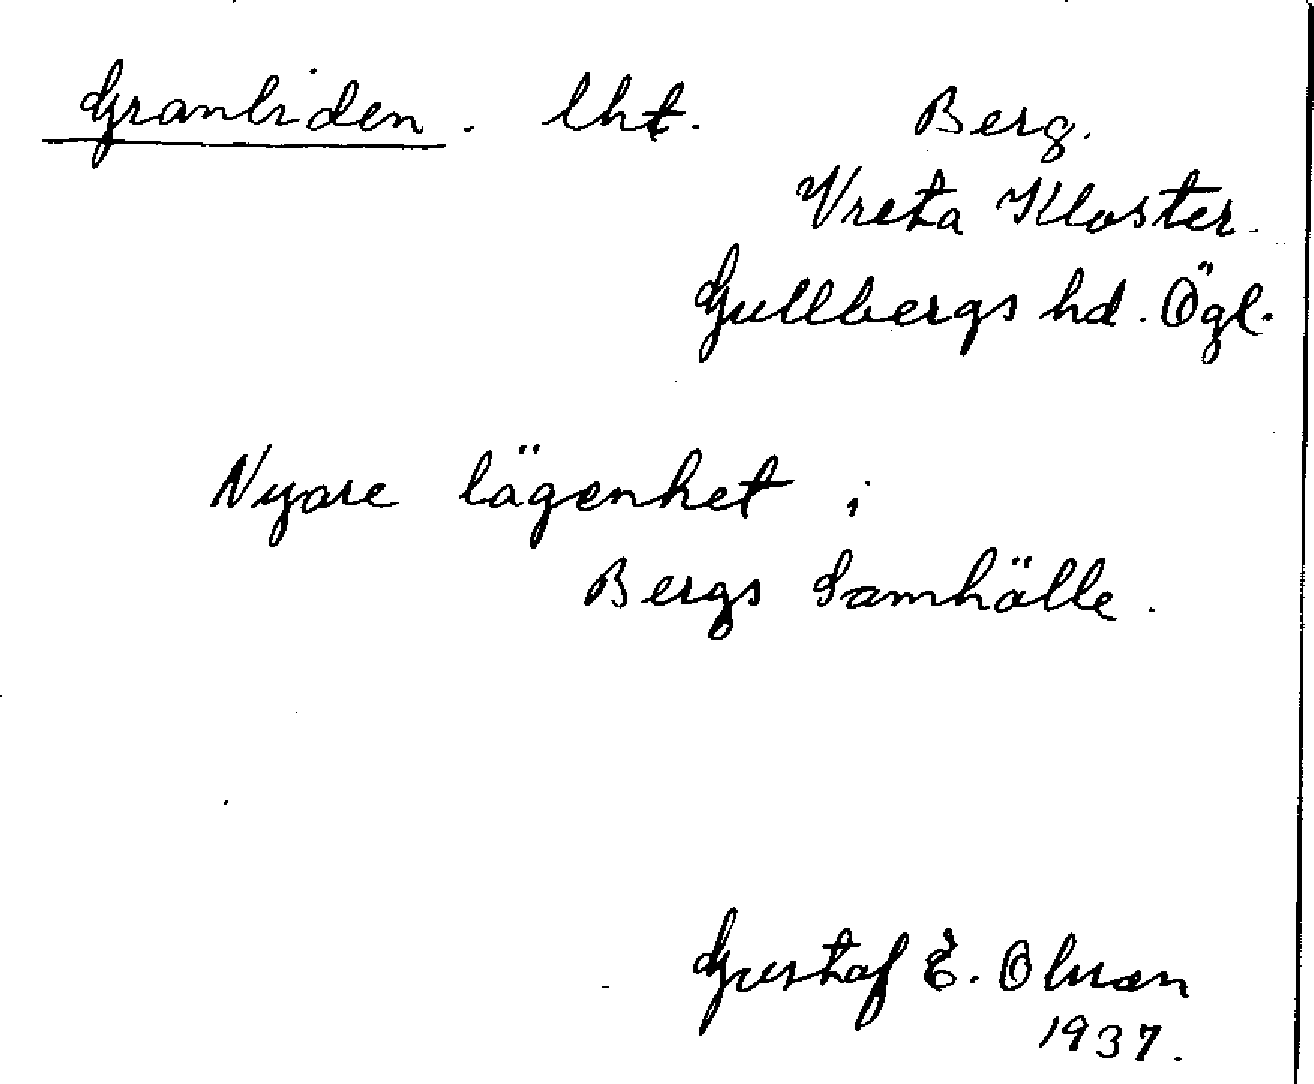 Granliden. lht. Berg.
Vreta Kloster.
Gullbergs hd. Ögl.
Nyare lägenhet i
Bergs Samhälle.
Gustaf E. Olsson
1937.